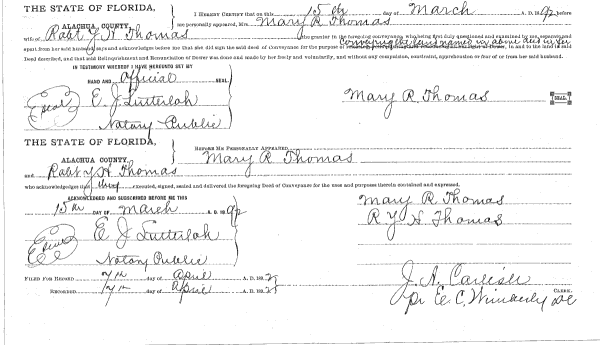 THE STATE OF FLORIDA,
ALACHUA COUNTY
I HEREBY CERTIFY that on this 15 th day of March A. D. 1892 before
me personally appeared, Mrs. Mary R Thomas
wife of Robt Y H Thomas the grantor in the foregoing conveyance, who being first duly questioned and examined by me, separate and
apart from her said husband, says and acknowledges before me that she did sign the said deed of Conveyance for the purpose of conveying the land named in above deed in and to the land in said
Deed described, and that said Relinquishment and Renunciation of Dower was done and made by her freely and voluntarily, and without any compulsion, constraint, apprehension or fear of or from her said husband.
IN TESTIMONY WHEREOF I HAVE HEREUNTO SET BY
HAND AND official SEAL
E. J. Lutterloh
Notary Public
Mary R. Thomas
SEAL
THE STATE OF FLORIDA,
ALACHUA COUNTY
BEFORE ME PERSONALLY APPEARED
Mary R Thomas
and Robt Y H Thomas
who acknowledges that they executed, signed, sealed and delivered the foregoing Deed of Conveyance for the uses and purposes therein contained and expressed.
ACKNOWLEDGED AND SUBSCRIBED BEFORE ME THIS
15 th DAY OF March A. D. 1892
E J Lutterloh
Notary Public
Mary R. Thomas
R Y H Thomas
FILED FOR RECORD 7th day of April A. D. 189
RECORDED day of April A. D. 189
J. A. Carlisle
CLERK.
pr E. C. Wimberly DC